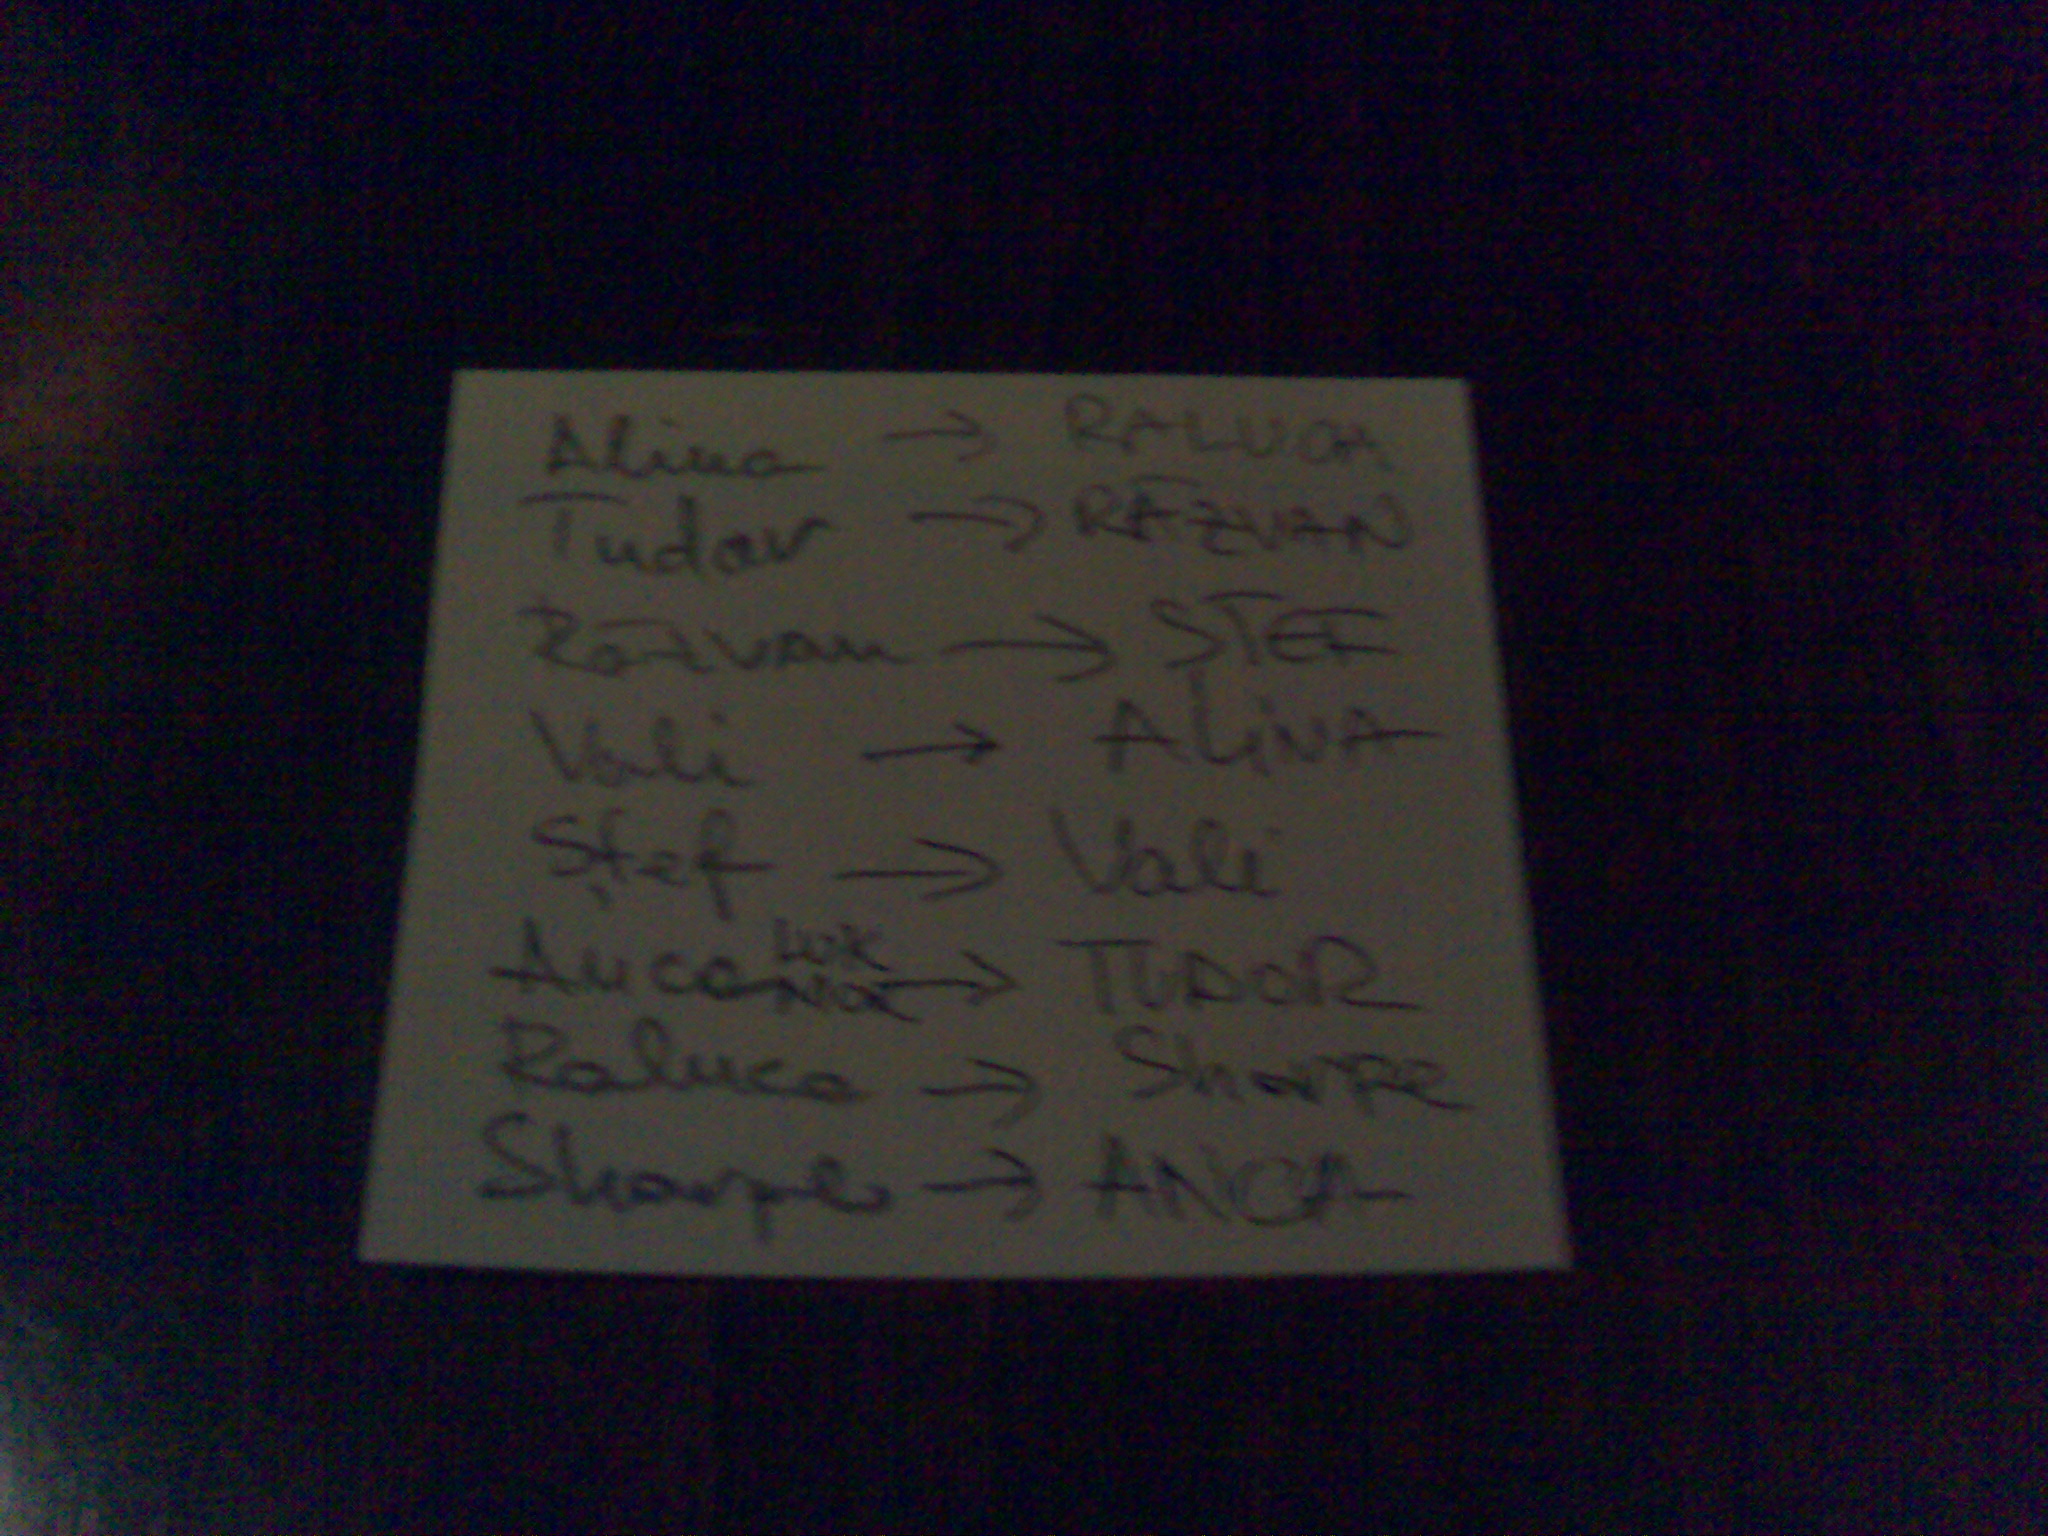 Alina → RALUCA
Tudor → RĂZVAN
Răzvan → STEF
Vali → ALiNA
Ștef → Vali
Anca → TUDOR
Raluca → Sharpe
Sharpe → ANCA